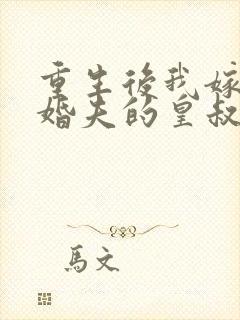 重生後我嫁
婚夫的皇叔
馬文